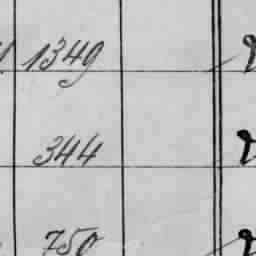 1349
344
750